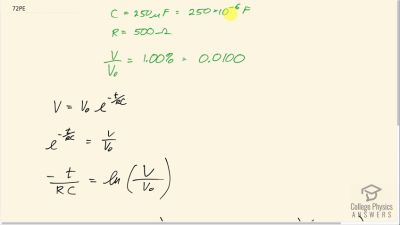 72PE
C = 250 μF = 250×10⁻⁶ F
R = 500 Ω
V/V₀ = 1.00% = 0.0100
V = V₀ e^(-t/RC)
e^(-t/RC) = V/V₀
-t/RC = ln(V/V₀)
College Physics
ANSWERS